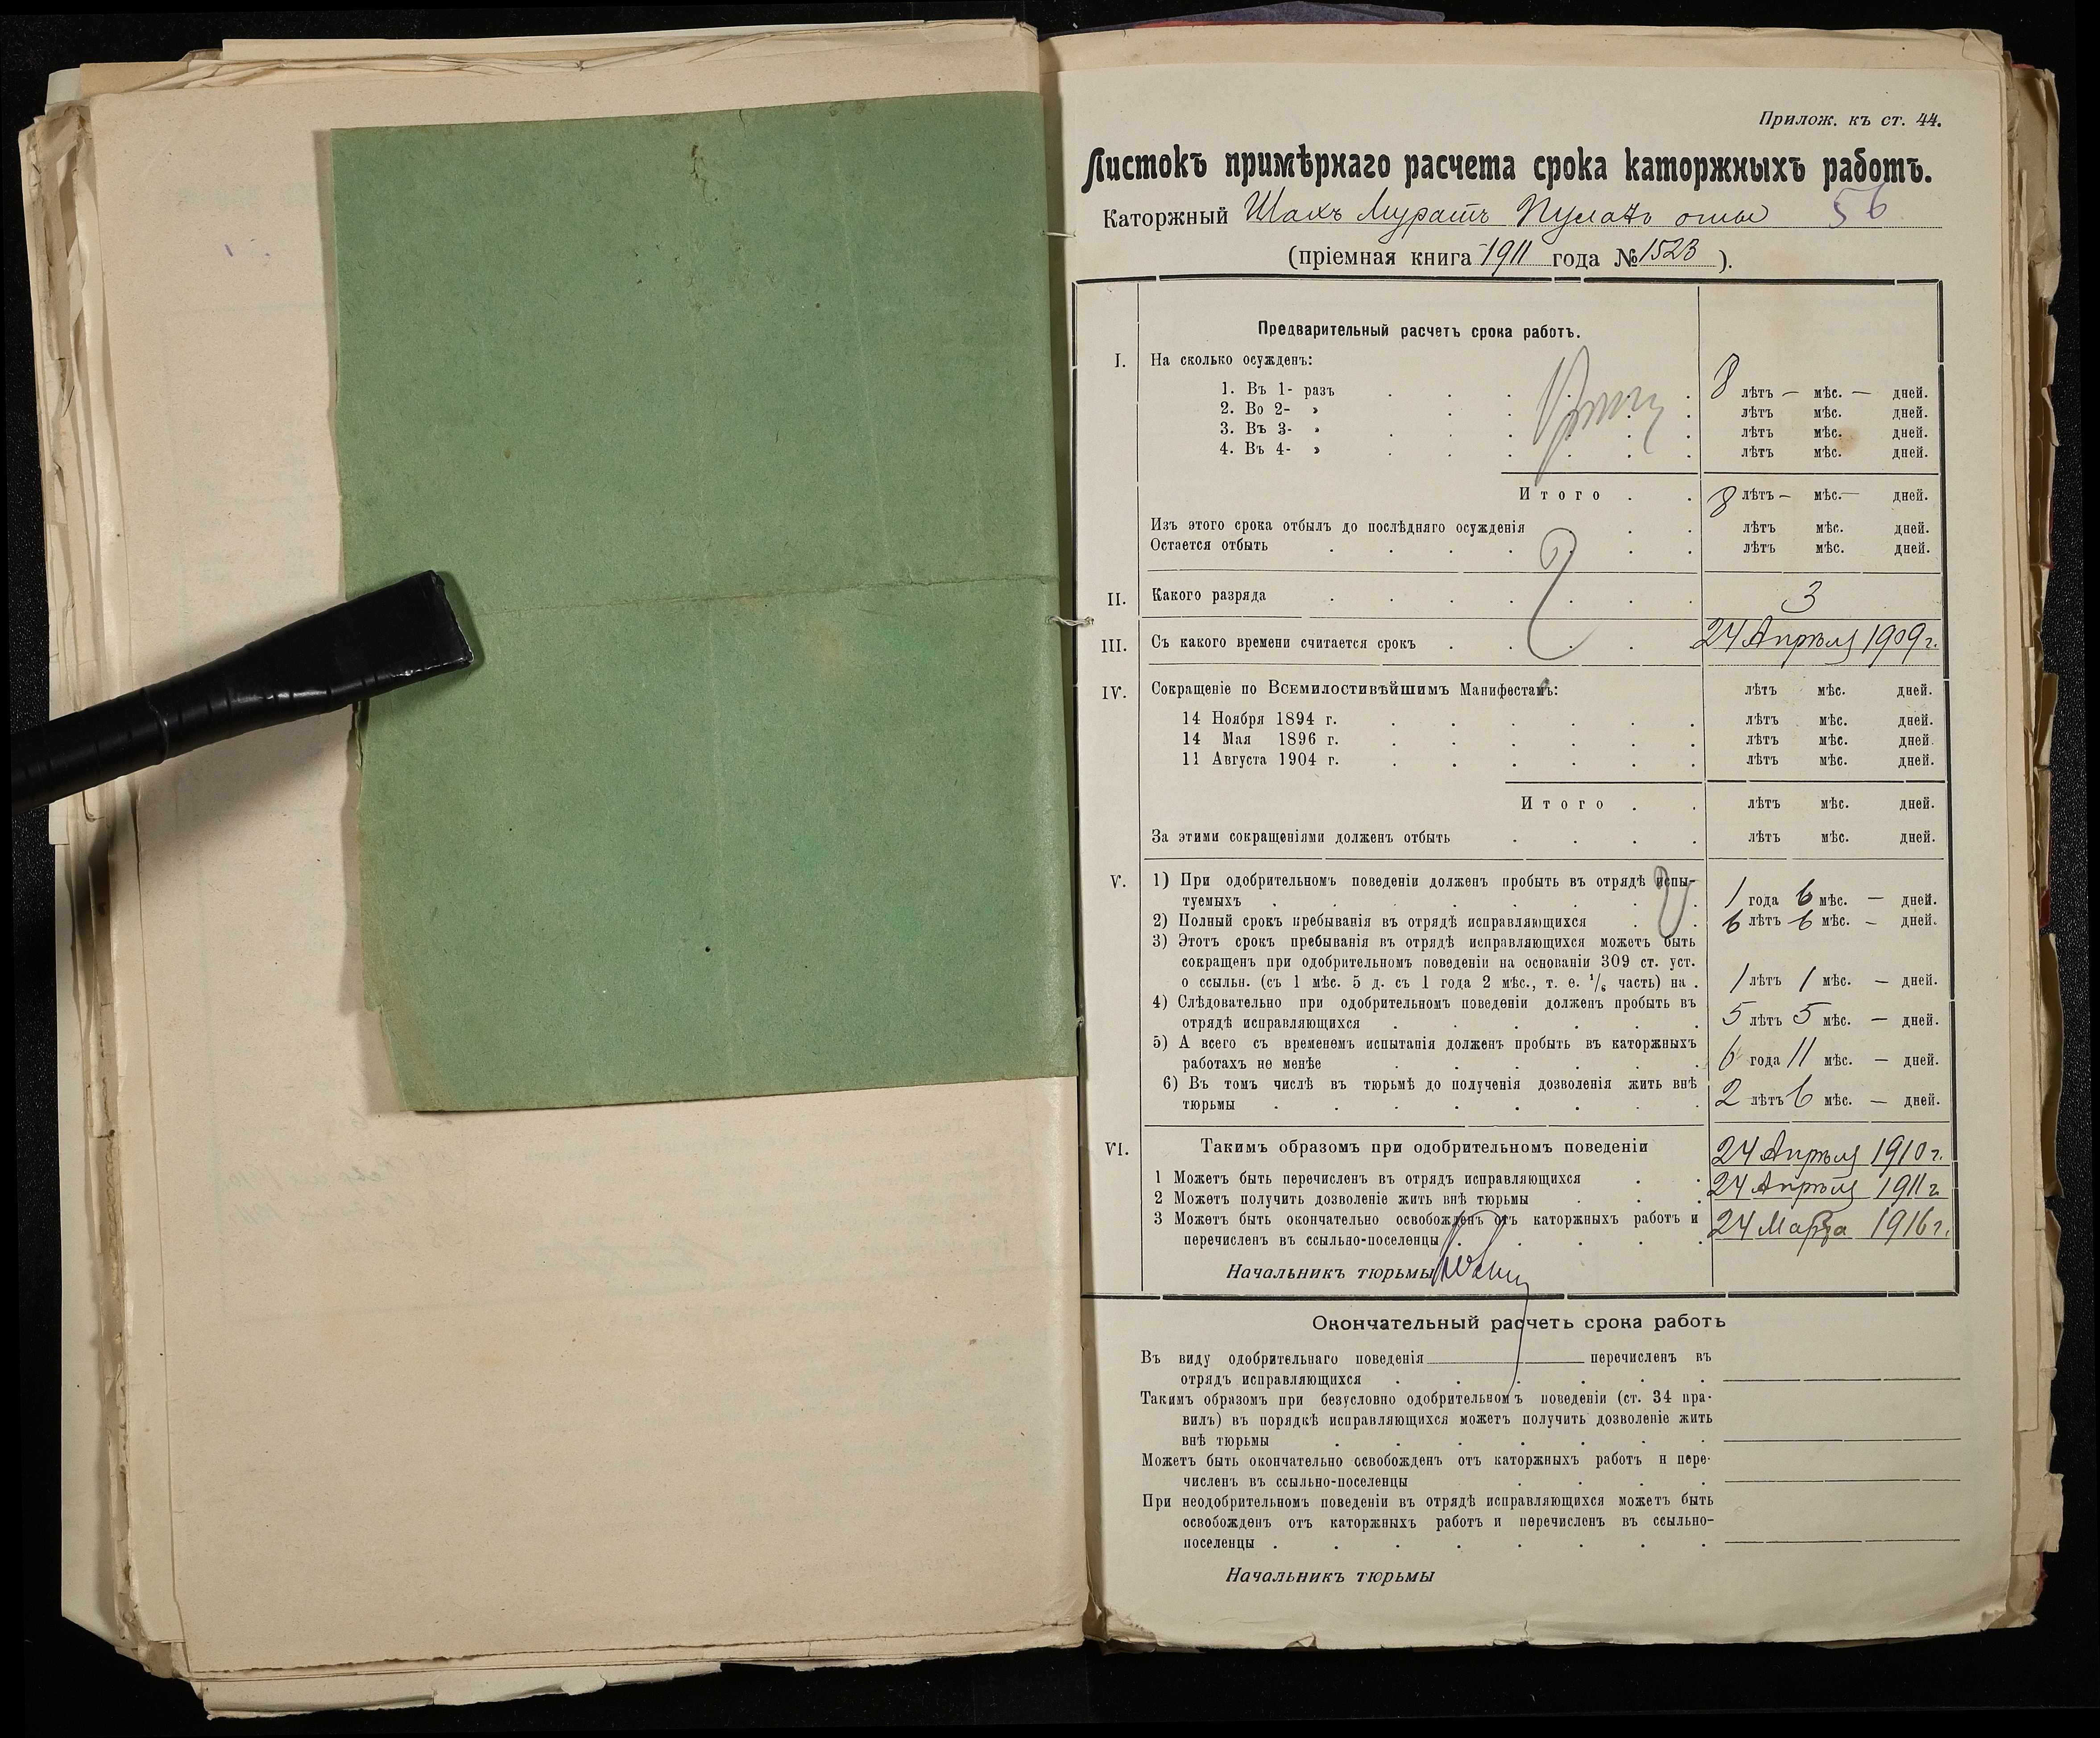 Прилож. къ ст. 44.
Листокъ примѣрнаго расчета срока каторжныхъ работъ.
Каторжный Шахъ Муратъ Пулатъ оглы 56
(пріемная книга 1911 года № 1523 ).
Предварительный расчетъ срока работъ.
I. На сколько осужденъ:
1. Въ 1- разъ 8 лѣтъ — мѣс. — дней.
2. Во 2- » лѣтъ мѣс. дней.
3. Въ 3- » лѣтъ мѣс. дней.
4. Въ 4- » лѣтъ мѣс. дней.
Итого 8 лѣтъ — мѣс. — дней.
Изъ этого срока отбылъ до послѣдняго осужденія лѣтъ мѣс. дней.
Остается отбыть лѣтъ мѣс. дней.
II. Какого разряда 3
III. Съ какого времени считается срокъ 24 Апрѣля 1909 г.
IV. Сокращеніе по Всемилостивѣйшимъ Манифестамъ: лѣтъ мѣс. дней.
14 Ноября 1894 г. лѣтъ мѣс. дней.
14 Мая 1896 г. лѣтъ мѣс. дней.
11 Августа 1904 г. лѣтъ мѣс. дней.
Итого лѣтъ мѣс. дней.
За этими сокращеніями долженъ отбыть лѣтъ мѣс. дней.
V. 1) При одобрительномъ поведеніи долженъ пробыть въ отрядѣ испы-
туемыхъ 1 года 6 мѣс. — дней.
2) Полный срокъ пребыванія въ отрядѣ исправляющихся 6 лѣтъ 6 мѣс. — дней.
3) Этотъ срокъ пребыванія въ отрядѣ исправляющихся можетъ быть
сокращенъ при одобрительномъ поведеніи на основаніи 309 ст. уст.
о ссыльн. (съ 1 мѣс. 5 д. съ 1 года 2 мѣс., т. е. 1/6 часть) на . 1 лѣтъ 1 мѣс. — дней.
4) Слѣдовательно при одобрительномъ поведеніи долженъ пробыть въ
отрядѣ исправляющихся 5 лѣтъ 5 мѣс. — дней.
5) А всего съ временемъ испытанія долженъ пробыть въ каторжныхъ
работахъ не менѣе 6 года 11 мѣс. — дней.
6) Въ томъ числѣ въ тюрьмѣ до полученія дозволенія жить внѣ
тюрьмы 2 лѣтъ 6 мѣс. — дней.
VI. Такимъ образомъ при одобрительномъ поведеніи
1 Можетъ быть перечисленъ въ отрядъ исправляющихся 24 Апрѣля 1910 г.
2 Можетъ получить дозволеніе жить внѣ тюрьмы 24 Апрѣля 1911 г.
3 Можетъ быть окончательно освобожденъ отъ каторжныхъ работъ и
перечисленъ въ ссыльно-поселенцы 24 Марта 1916 г.
Начальникъ тюрьмы
Окончательный расчетъ срока работъ
Въ виду одобрительнаго поведенія перечисленъ въ
отрядъ исправляющихся
Такимъ образомъ при безусловно одобрительномъ поведеніи (ст. 34 пра-
вилъ) въ порядкѣ исправляющихся можетъ получить дозволеніе жить
внѣ тюрьмы
Можетъ быть окончательно освобожденъ отъ каторжныхъ работъ и пере-
численъ въ ссыльно-поселенцы
При неодобрительномъ поведеніи въ отрядѣ исправляющихся можетъ быть
освобожденъ отъ каторжныхъ работъ и перечисленъ въ ссыльно-
поселенцы
Начальникъ тюрьмы